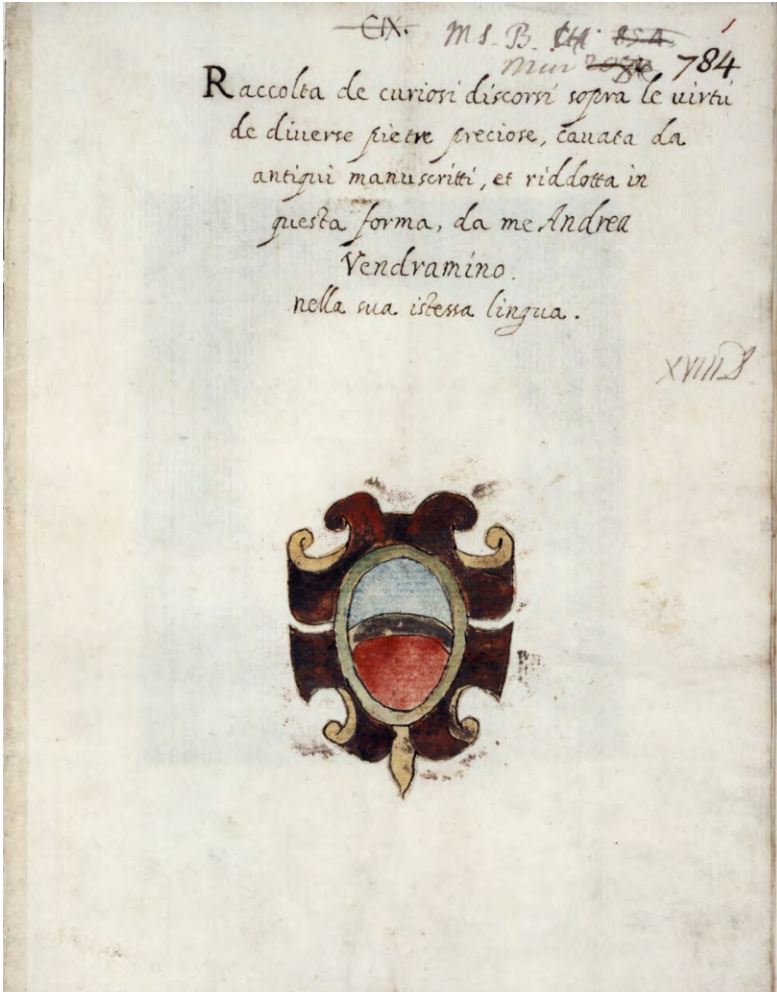 CIX.
Ms. B. 784
Raccolta de curiosi discorsi sopra le uirtù
de diuerse pietre preciose, cauata da
antiqui manuscritti, et riddotta in
questa forma, da me Andrea
Vendramino.
nella sua istessa lingua.
XVIII